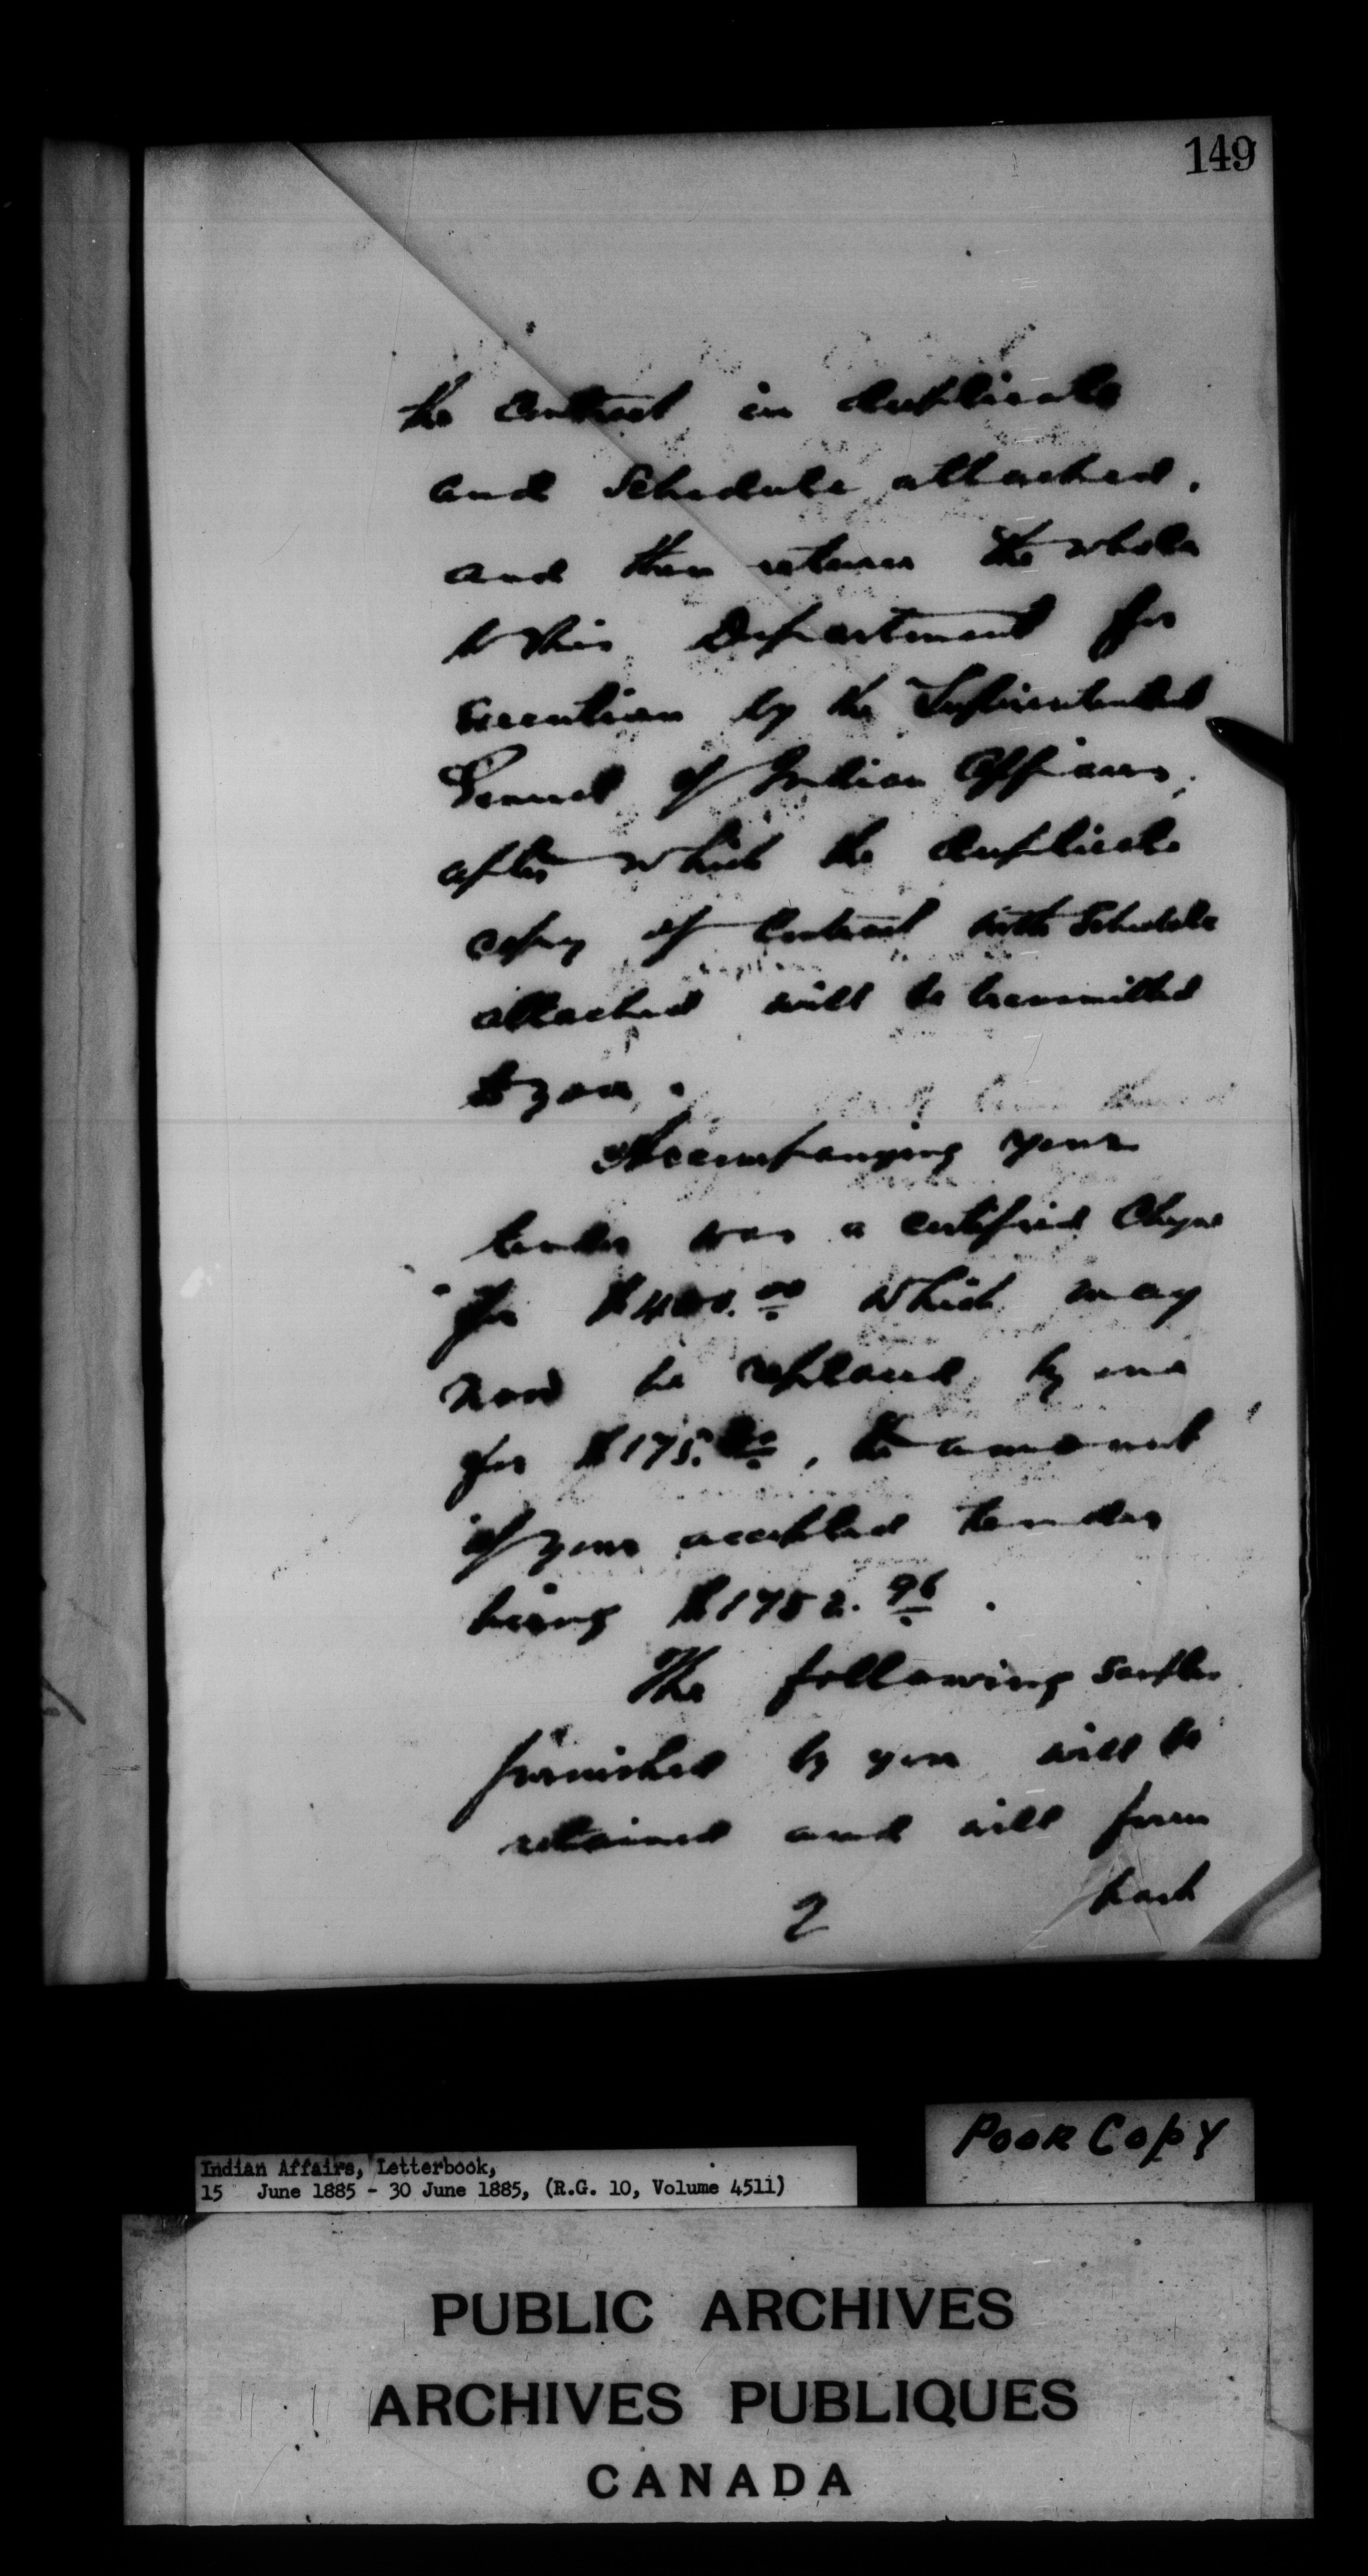 149
the Contract in duplicate
and Schedule attached,
and then return the whole
to this Department for
execution by the Superintendent
General of Indian Affairs,
after which the duplicate
copy of Contract with Schedule
attached will be transmitted
to you.
Accompanying your
tender was a certified Cheque
for $400.00 which may
now be replaced by one
for $175.00, the amount
of your accepted tender
being $1752.96.
The following samples
furnished by you will be
retained and will form
2 part
Poor Copy
Indian Affairs, Letterbook,
15 June 1885 - 30 June 1885, (R.G. 10, Volume 4511)
PUBLIC ARCHIVES
ARCHIVES PUBLIQUES
CANADA